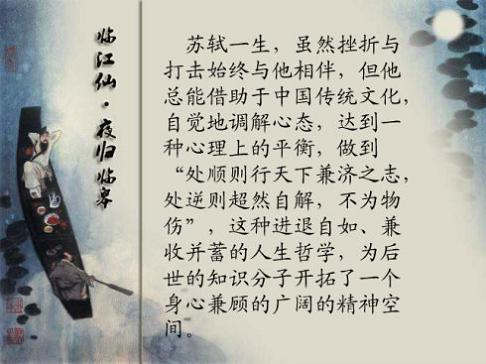 临江仙·夜归临皋
苏轼一生，虽然挫折与
打击始终与他相伴，但他
总能借助于中国传统文化，
自觉地调解心态，达到一
种心理上的平衡，做到
“处顺则行天下兼济之志，
处逆则超然自解，不为物
伤”，这种进退自如、兼
收并蓄的人生哲学，为后
世的知识分子开拓了一个
身心兼顾的广阔的精神空
间。